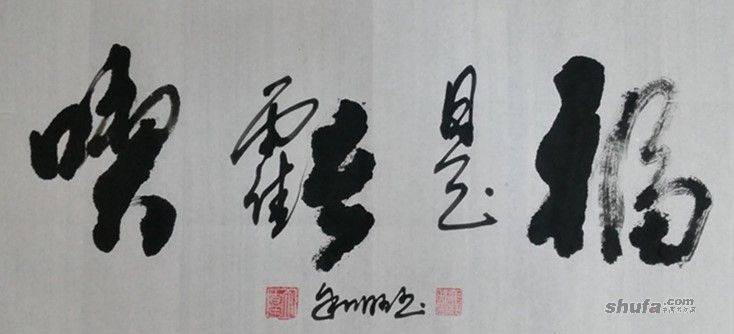 喫虧是福
shufa.com